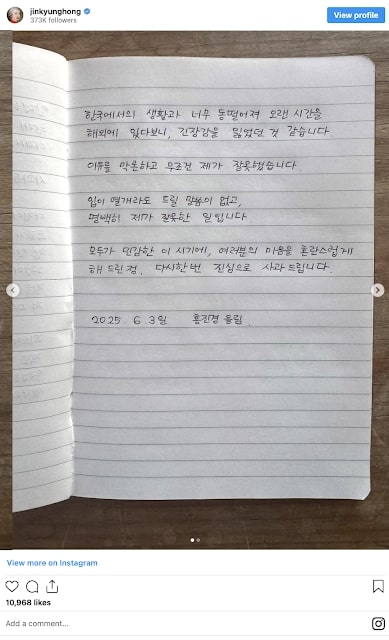 jinkyunghong
373K followers
View profile
한국에서의 생활과 너무 동떨어져 오랜 시간을
해외에 있다보니, 긴장감을 잃었던 것 같습니다.
이유를 막론하고 무조건 제가 잘못했습니다.
입이 열개라도 드릴 말씀이 없고,
명백히 제가 잘못한 일입니다
모두가 민감한 이 시기에, 여러분의 마음을 혼란스럽게
해 드린 점. 다시한번 진심으로 사과드립니다.
2025. 6. 3일 홍진경 올림
View more on Instagram
10,968 likes
Add a comment...